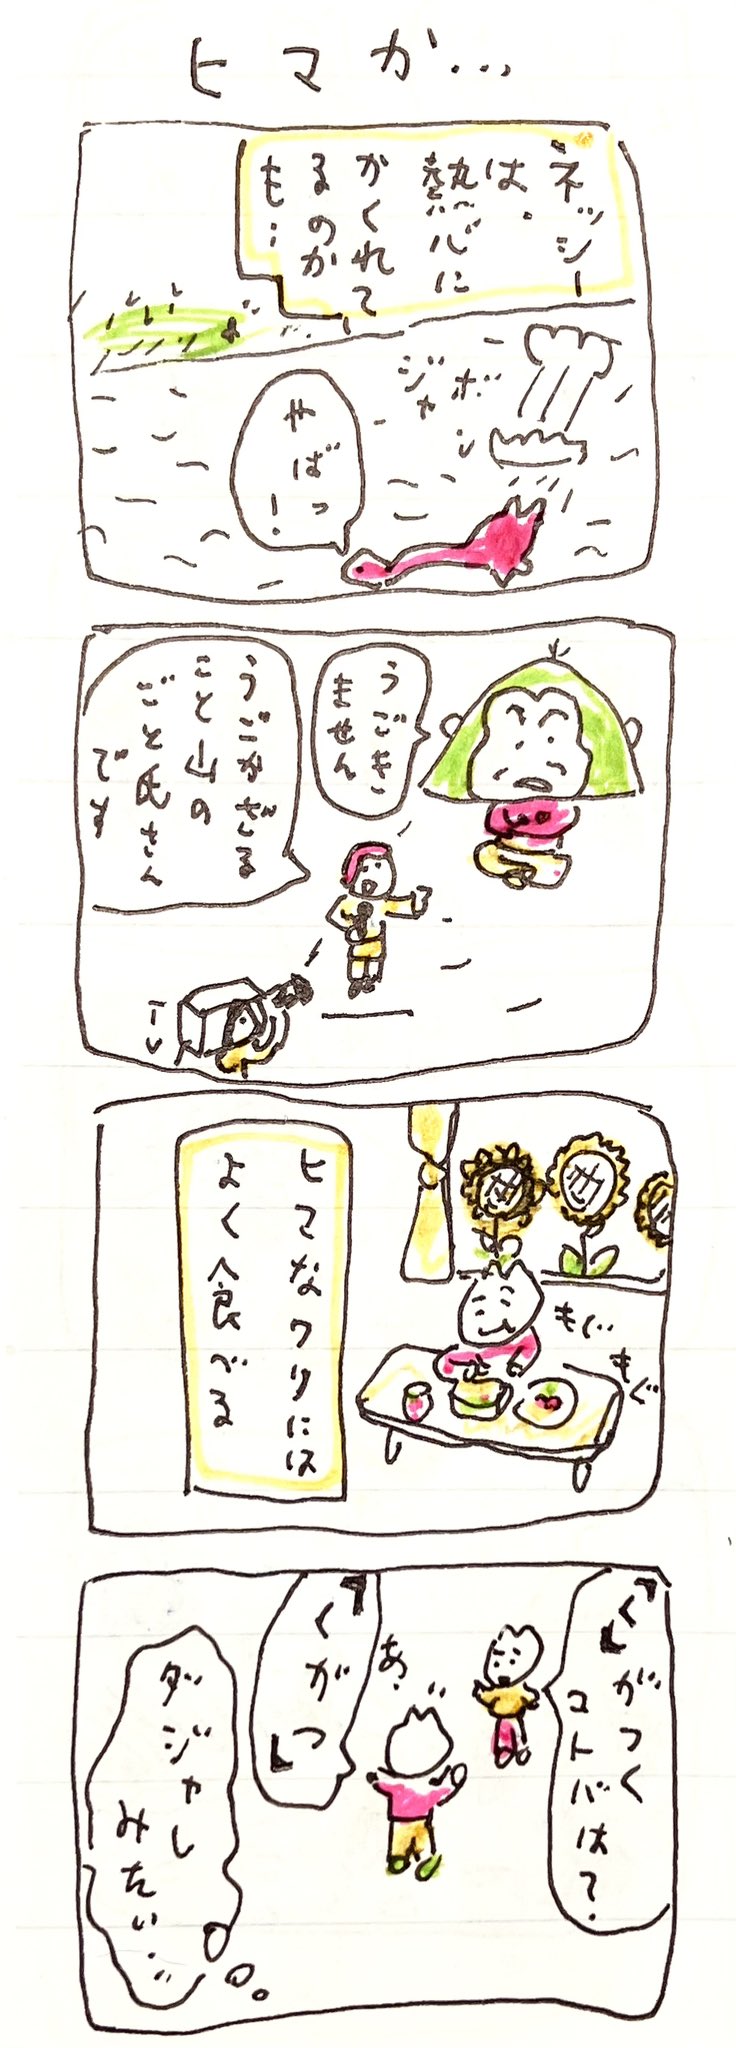 ヒマか…
ネッシー
は、
熱心に
かくれて
るのか
も…
ジャボン
やばっ!
うごき
ません
うごかざる
こと山の
ごと氏さん
です
ヒマなワリには
よく食べる
もぐ
もぐ
『く』がつく
コトバは?
あ、
『くがつ』
ダジャレ
みたい…